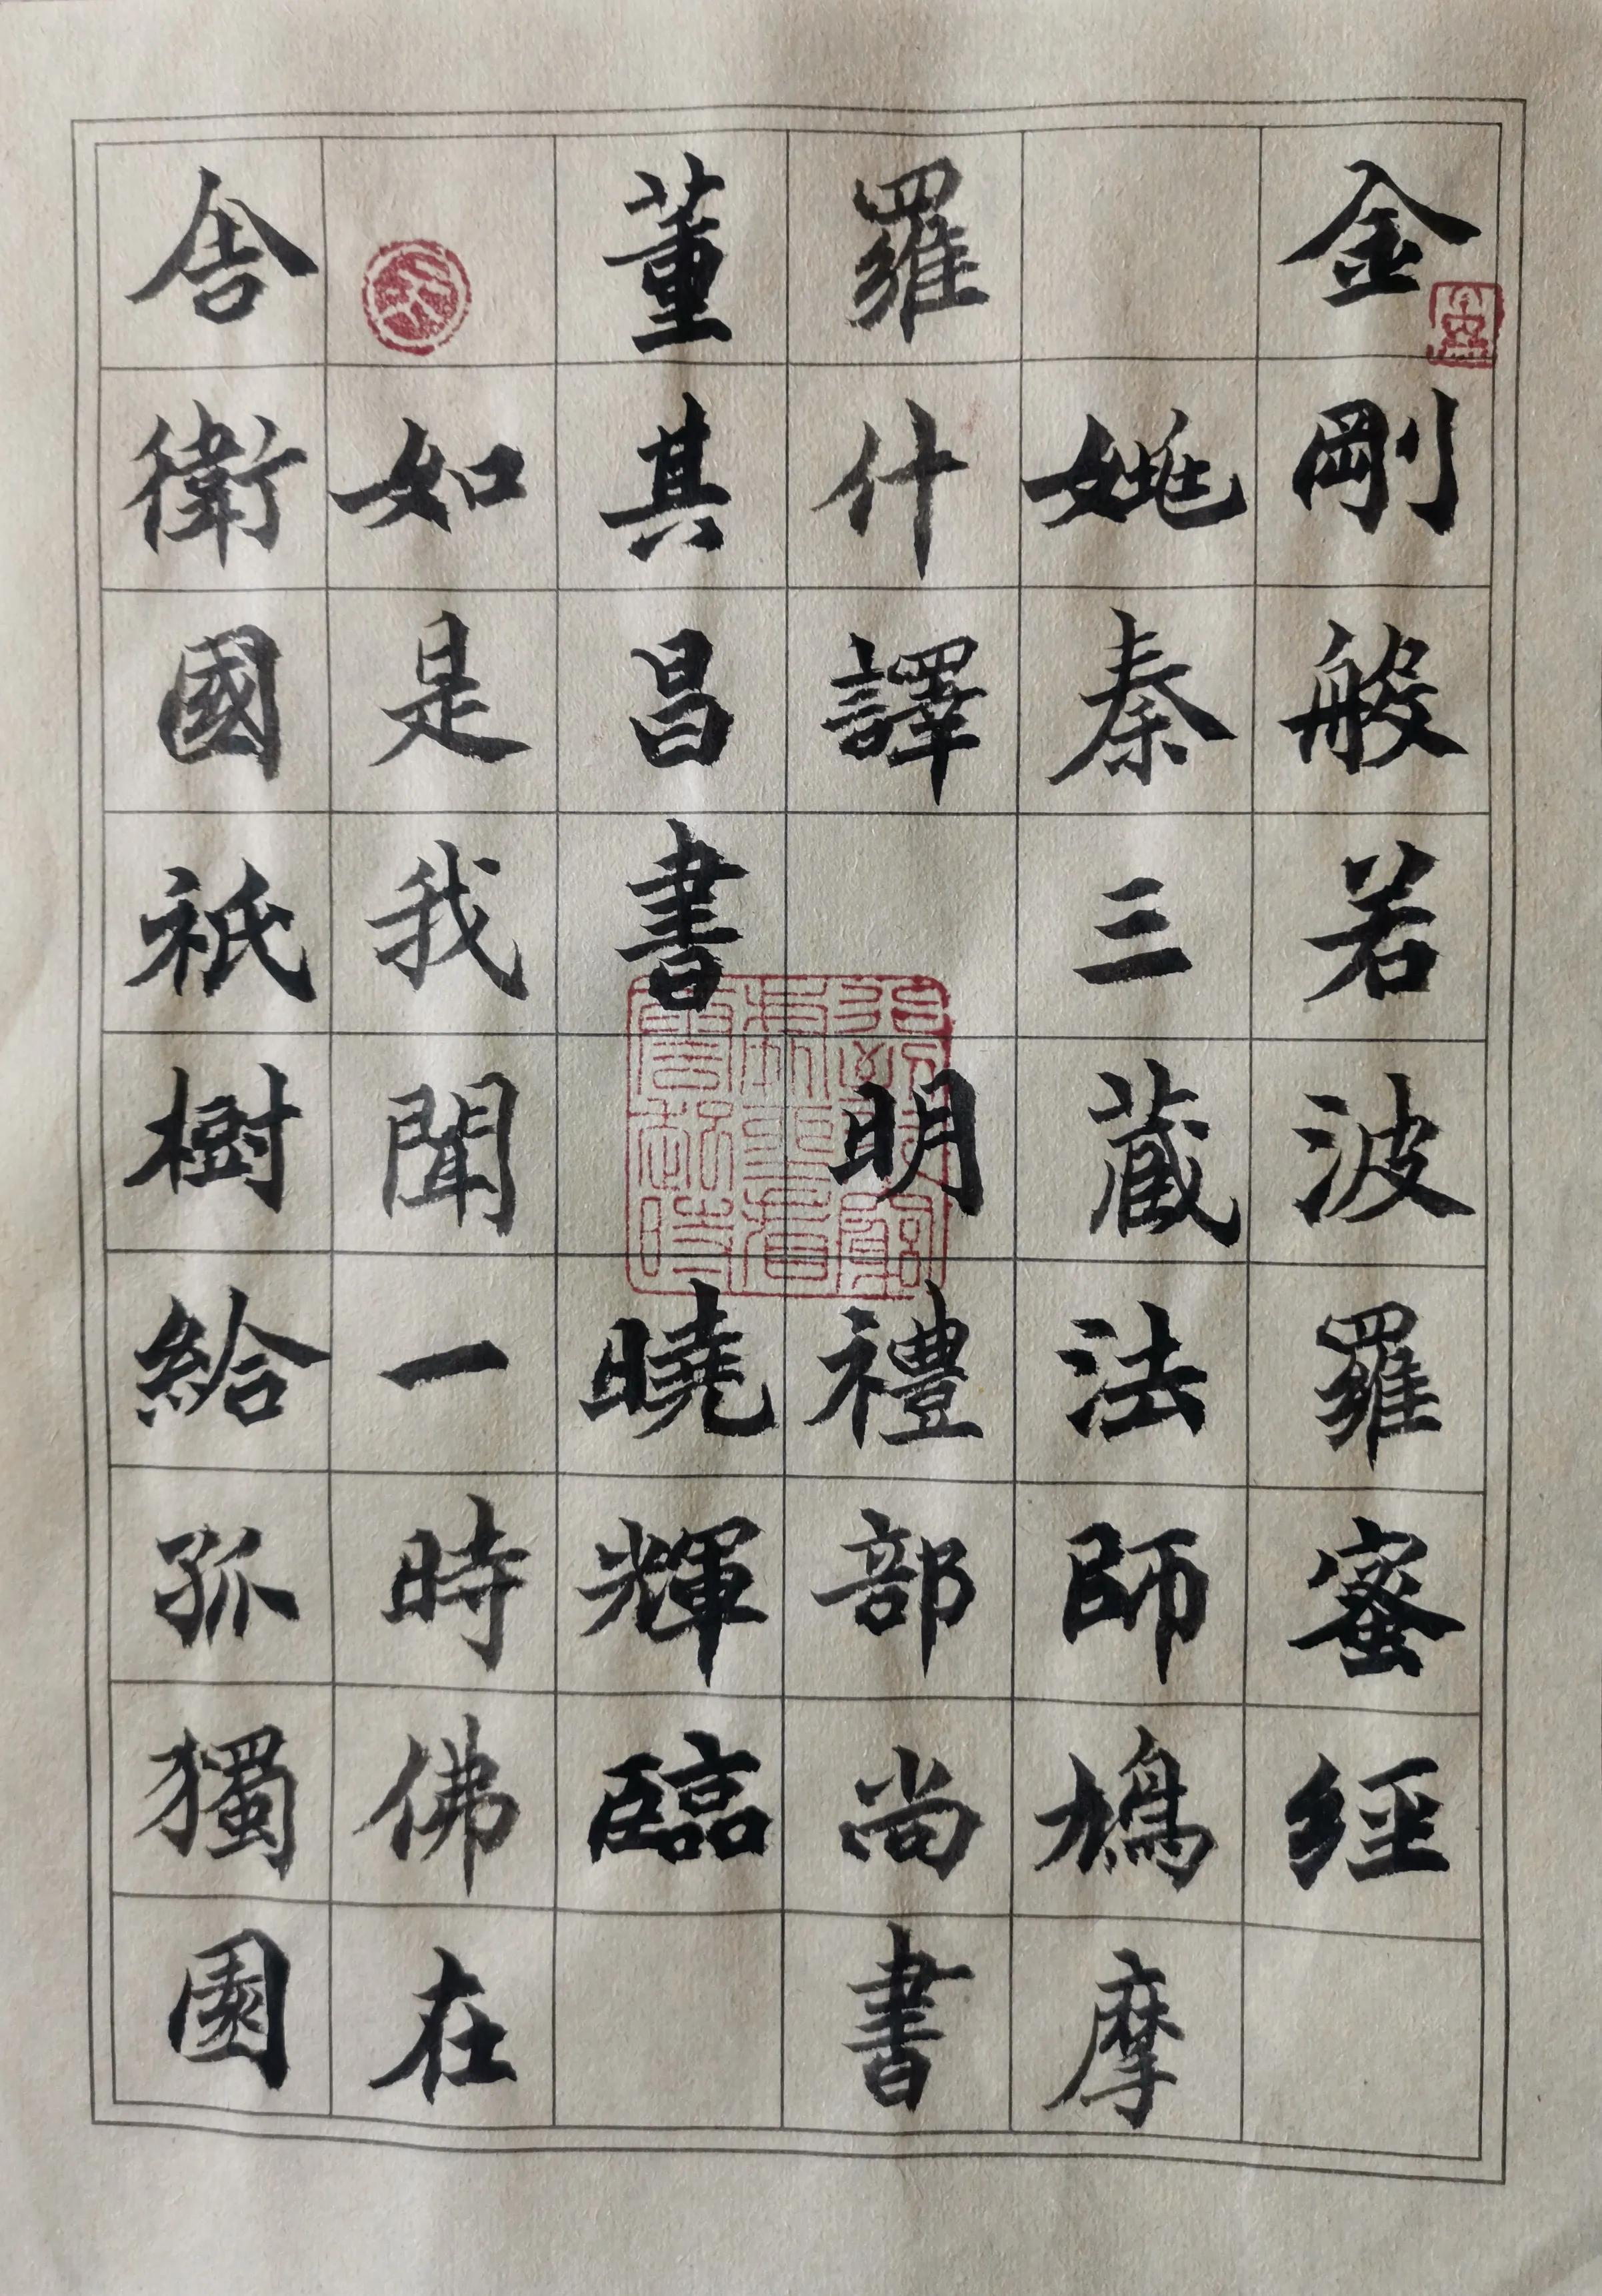 金剛般若波羅蜜經
姚秦三藏法師鳩摩
羅什譯 明禮部尚書
董其昌書 曉輝臨
如是我聞一時佛在
舍衛國祇樹給孤獨園